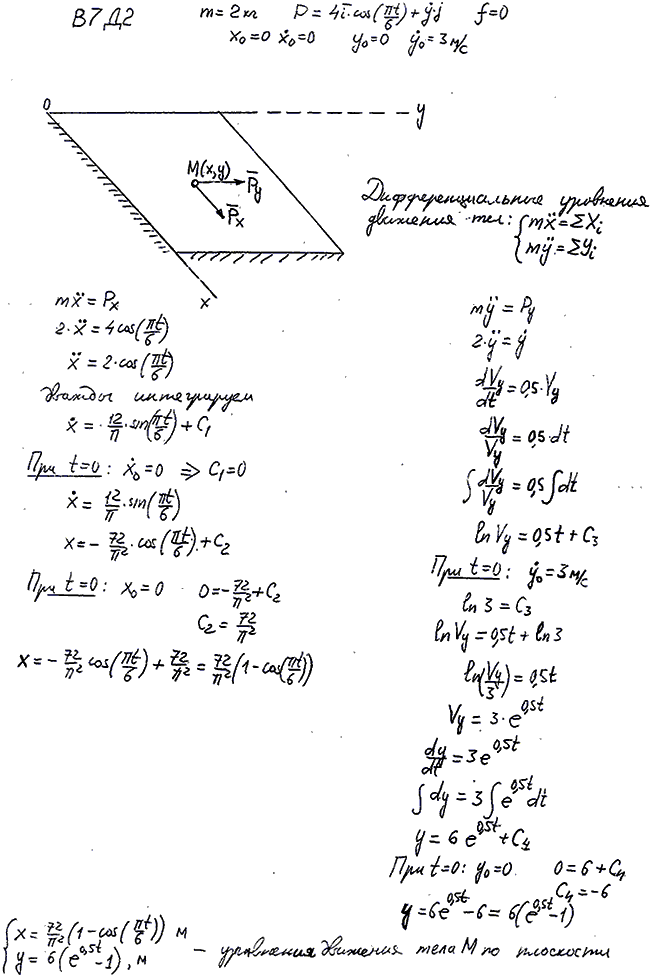 В7Д2 m=2кг P=4i̅·cos(πt/6)+ẏ·j f=0
x₀=0 ẋ₀=0 y₀=0 ẏ₀=3м/с
O
y
M(x,y)
P̅y
P̅x
x
Дифференциальные уровнения
движения тел: {mẍ=ΣXi
mÿ=ΣYi
mẍ=Px
2·ẍ=4cos(πt/6)
ẍ=2·cos(πt/6)
Дважды интегрируем
ẋ=·12/π·sin(πt/6)+C₁
При t=0: ẋ₀=0 => C₁=0
ẋ=12/π·sin(πt/6)
x=-72/π²·cos(πt/6)+C₂
При t=0: x₀=0 0=-72/π²+C₂
C₂=72/π²
x=-72/π²cos(πt/6)+72/π²=72/π²(1-cos(πt/6))
mÿ=Py
2·ÿ=ẏ
dVy/dt=0,5·Vy
dVy/Vy=0,5·dt
∫dVy/Vy=0,5∫dt
lnVy=0,5t+C₃
При t=0: ẏ₀=3м/с
ln3=C₃
lnVy=0,5t+ln3
ln(Vy/3)=0,5t
Vy=3·e^0,5t
dy/dt=3e^0,5t
∫dy=3∫e^0,5t dt
y=6e^0,5t+C₄
При t=0: y₀=0. 0=6+C₄
C₄=-6
y=6e^0,5t-6=6(e^0,5t-1)
{x=72/π²(1-cos(πt/6)) м
y=6(e^0,5t-1), м – уровнения движения тела М по плоскости